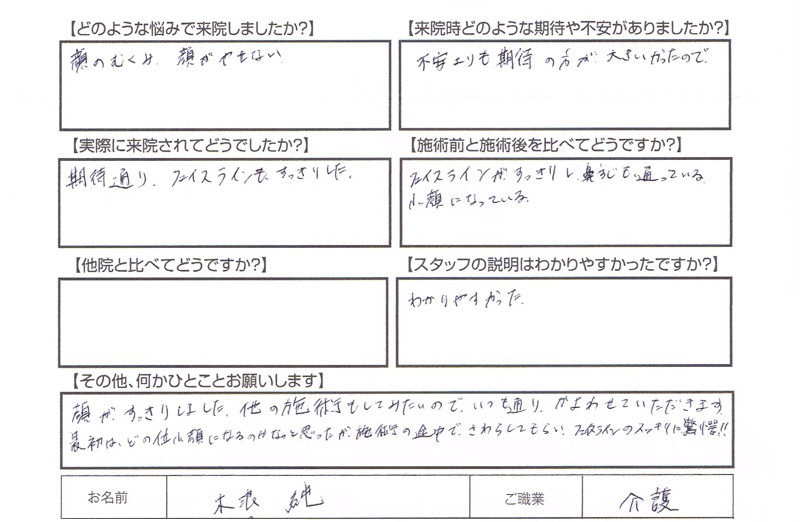 【どのような悩みで来院しましたか?】
顔のむくみ、顔がやせない
【来院時どのような期待や不安がありましたか?】
不安よりも期待の方が、大きいかったので、
【実際に来院されてどうでしたか?】
期待通り、フェイスラインも、すっきりした。
【施術前と施術後を比べてどうですか?】
フェイスラインが、すっきりし、鼻すじも、通っている。
小顔になっている。
【他院と比べてどうですか?】
【スタッフの説明はわかりやすかったですか?】
わかりやすかった。
【その他、何かひとことお願いします】
顔が、すっきりしました。他の施術もしてみたいので、いつも通り、かよわせていただきます。
最初は、どの位小顔になるのかなっと思ったが、施術の途中で、さわらしてもらい、フェイスラインのスッキリに驚愕!!
お名前
ご職業 介護